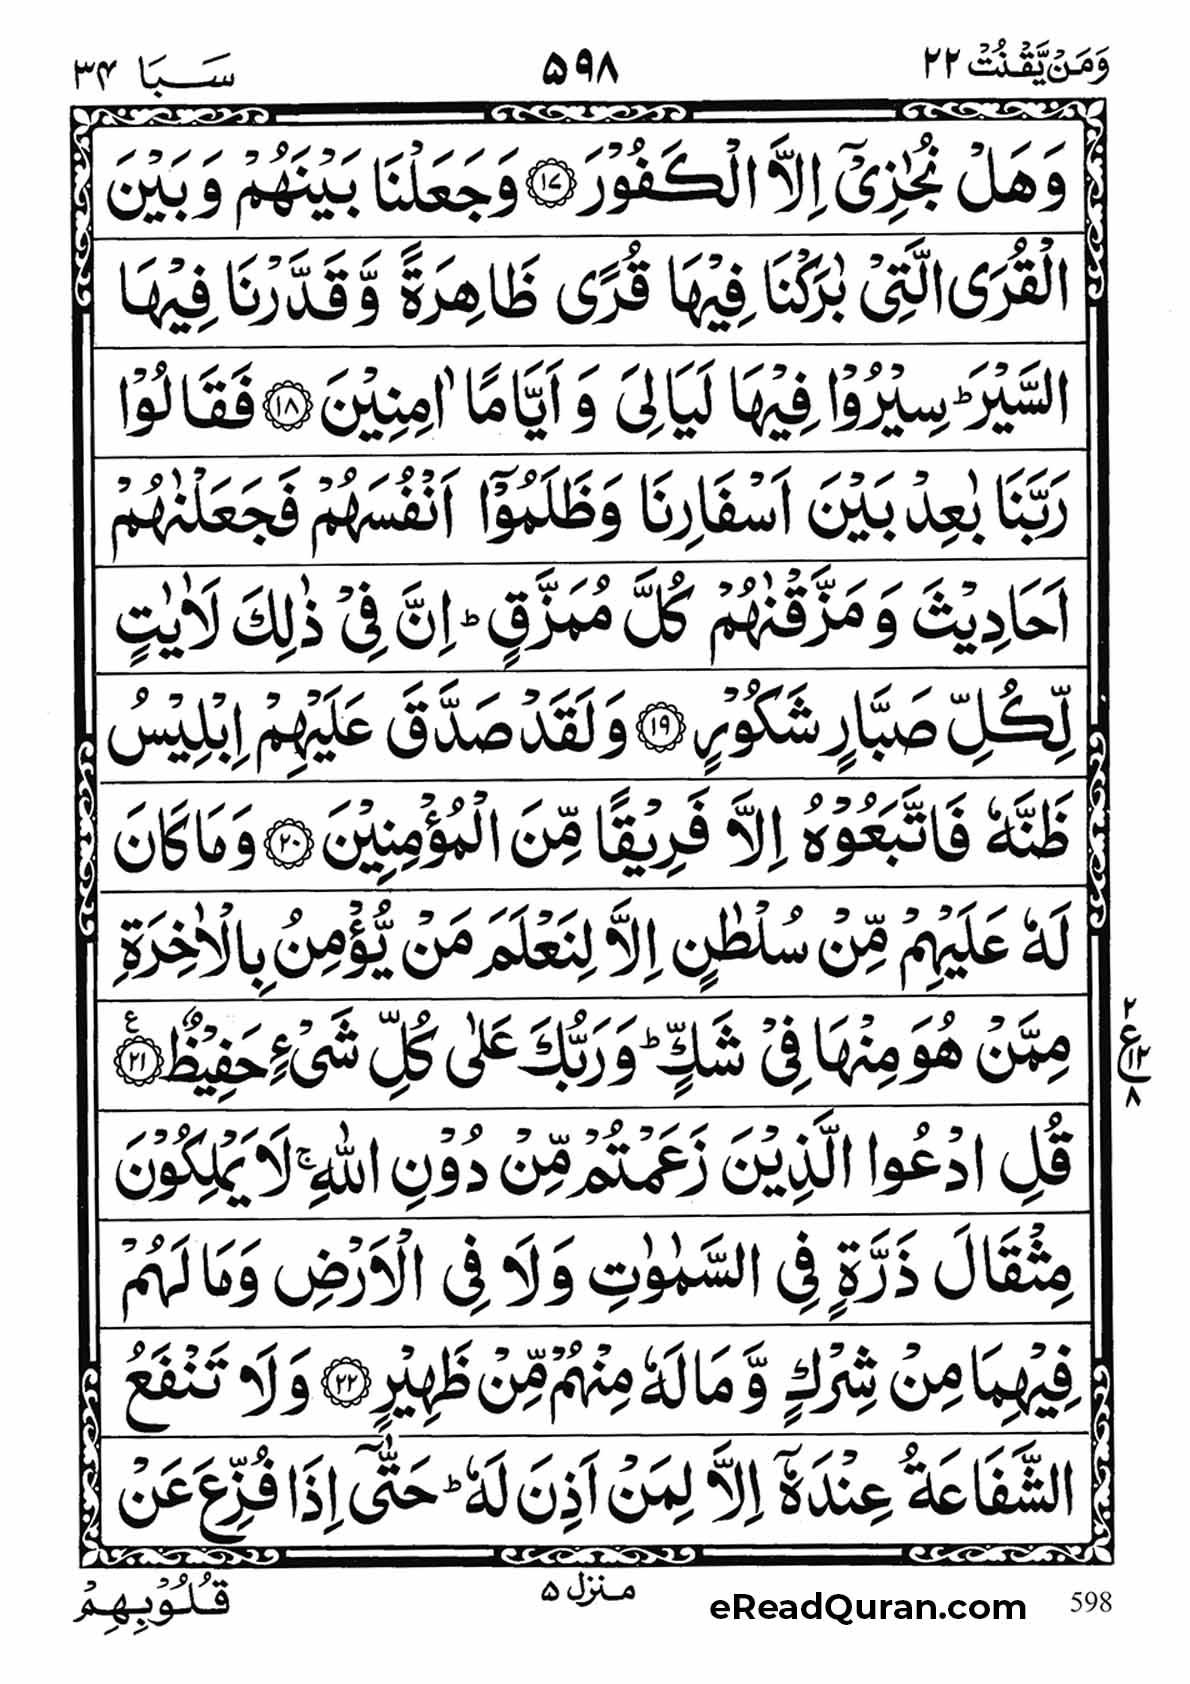 وَمَنْ يَّقْنُتْ ٢٢ ۵۹۸ سَبَا ٣٤
وَهَلْ نُجٰزِیْۤ اِلَّا الْكَفُوْرَ ﴿۱۷﴾ وَجَعَلْنَا بَيْنَهُمْ وَبَيْنَ
الْقُرَى الَّتِیْ بٰرَكْنَا فِيْهَا قُرًى ظَاهِرَةً وَّقَدَّرْنَا فِيْهَا
السَّيْرَ ؕ سِيْرُوْا فِيْهَا لَيَالِیَ وَاَيَّامًا اٰمِنِيْنَ ﴿۱۸﴾ فَقَالُوْا
رَبَّنَا بٰعِدْ بَيْنَ اَسْفَارِنَا وَظَلَمُوْۤا اَنْفُسَهُمْ فَجَعَلْنٰهُمْ
اَحَادِيْثَ وَمَزَّقْنٰهُمْ كُلَّ مُمَزَّقٍ ؕ اِنَّ فِیْ ذٰلِكَ لَاٰيٰتٍ
لِّكُلِّ صَبَّارٍ شَكُوْرٍ ﴿۱۹﴾ وَلَقَدْ صَدَّقَ عَلَيْهِمْ اِبْلِيْسُ
ظَنَّهٗ فَاتَّبَعُوْهُ اِلَّا فَرِيْقًا مِّنَ الْمُؤْمِنِيْنَ ﴿۲۰﴾ وَمَا كَانَ
لَهٗ عَلَيْهِمْ مِّنْ سُلْطٰنٍ اِلَّا لِنَعْلَمَ مَنْ يُّؤْمِنُ بِالْاٰخِرَةِ
مِمَّنْ هُوَ مِنْهَا فِیْ شَكٍّ ؕ وَرَبُّكَ عَلٰى كُلِّ شَیْءٍ حَفِيْظٌ ﴿۲۱﴾ ع
٢
ع
١٢
٨
قُلِ ادْعُوا الَّذِيْنَ زَعَمْتُمْ مِّنْ دُوْنِ اللّٰهِ ۚ لَا يَمْلِكُوْنَ
مِثْقَالَ ذَرَّةٍ فِی السَّمٰوٰتِ وَلَا فِی الْاَرْضِ وَمَا لَهُمْ
فِيْهِمَا مِنْ شِرْكٍ وَّمَا لَهٗ مِنْهُمْ مِّنْ ظَهِيْرٍ ﴿۲۲﴾ وَلَا تَنْفَعُ
الشَّفَاعَةُ عِنْدَهٗۤ اِلَّا لِمَنْ اَذِنَ لَهٗ ؕ حَتّٰۤى اِذَا فُزِّعَ عَنْ
قُلُوْبِهِمْ منزل ۵ eReadQuran.com 598